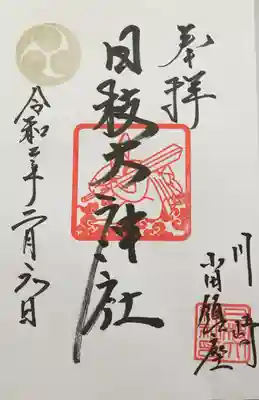 奉拝
川崎
小田鎮座
日枝大神社
令和二年二月六日